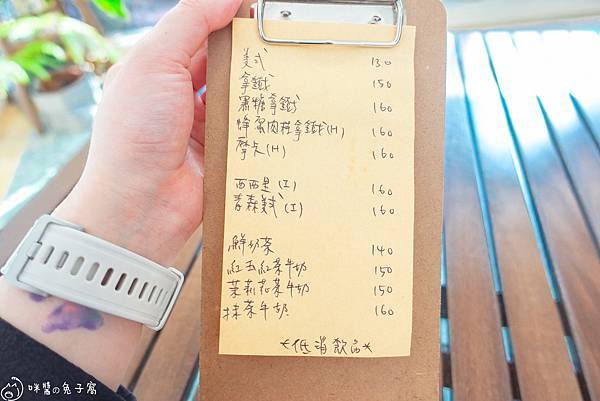 美式 130
拿鐵 150
黑糖拿鐵 160
蜂蜜肉桂拿鐵(H) 160
摩卡(H) 160
西西里(I) 160
青森美式(I) 160
鮮奶茶 140
紅玉紅茶牛奶 150
茉莉花茶牛奶 150
抹茶牛奶 160
*低消飲品*
咪醬の兔子窩